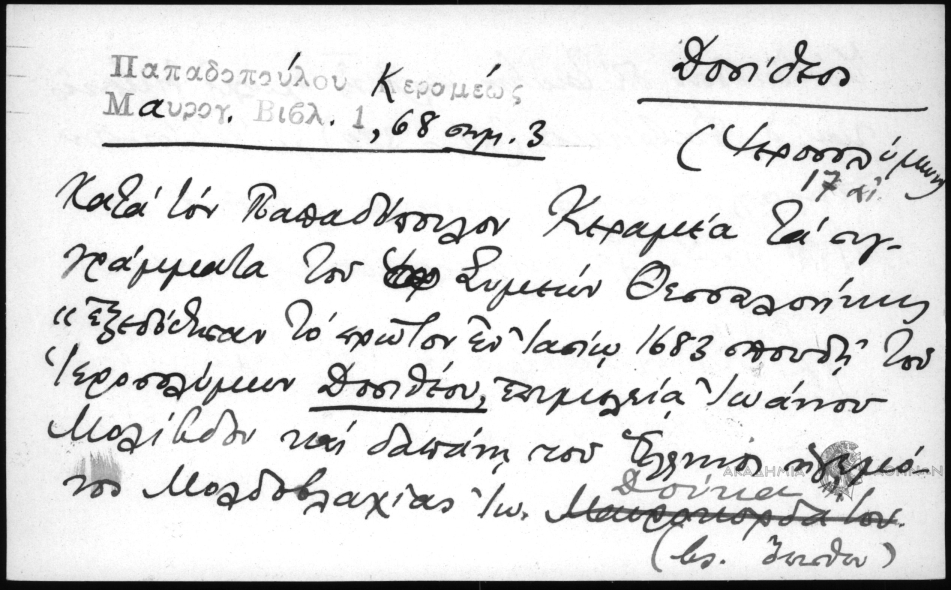 Παπαδοπούλου Κεραμέως
Μαυρογ. Βιβλ. 1, 68 σημ. 3
Δοσίθεος
(Ἱεροσολύμων
17 αἰ.
Κατά τόν Παπαδόπουλον Κεραμέα τά συγ-
γράμματα τοῦ Συμεών Θεσσαλονίκης
"ἐξεδόθησαν τό πρῶτον ἐν Ἰασίῳ 1683 σπουδῇ τοῦ
Ἱεροσολύμων Δοσιθέου, ἐπιμελείᾳ Ἰωάννου
Μολίβδου καί δαπάνῃ τοῦ Ἕλληνος ἡγεμό-
νος Μολδοβλαχίας Ἰω. Μαυροκορδάτου.
Δούκα
(βλ. ὄπισθεν)
ΑΚΑΔΗΜΙΑ ΑΘΗΝΩΝ